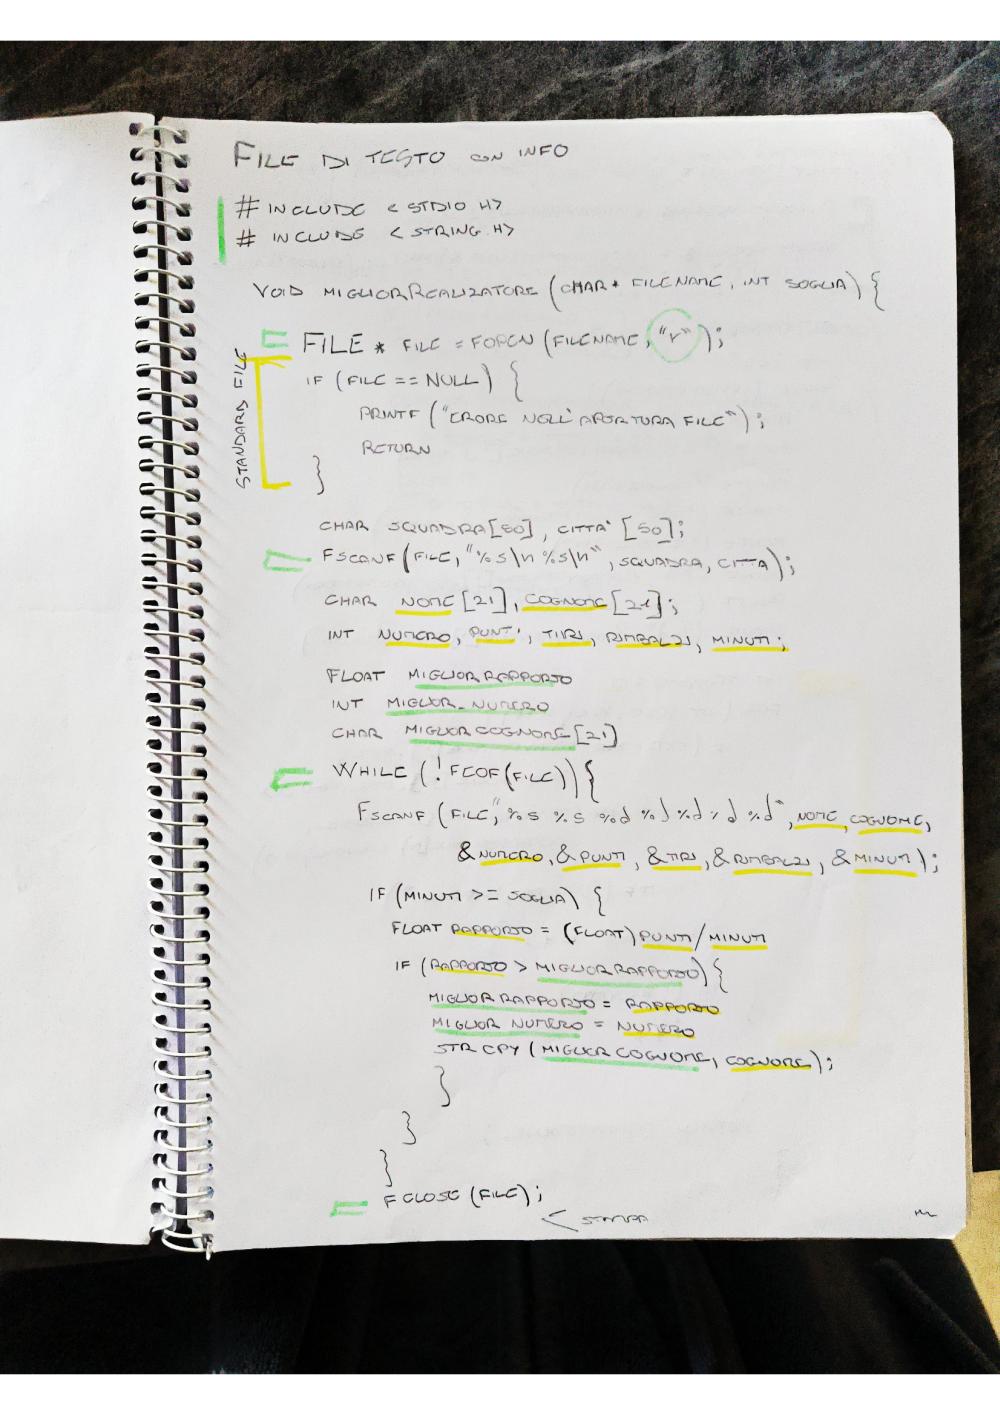 FILE DI TESTO CON INFO
# INCLUDE < STDIO H>
# INCLUDE < STRING.H>
VOID MIGLIORREALIZATORE (CHAR* FILENAME, INT SOGLIA) {
FILE * FILE = FOPEN (FILENAME, "r");
STANDARD FILE
IF (FILE == NULL) {
PRINTF ("ERORE NELL' APERTURA FILE");
RETURN
}
CHAR SQUADRA[50], CITTA' [50];
FSCANF (FILE, "%s\n %s\n", SQUADRA, CITTA);
CHAR NOME [21], COGNOME [21];
INT NUMERO, PUNTI, TIRI, RIMBALZI, MINUTI;
FLOAT MIGLIORRAPPORTO
INT MIGLIOR_NUMERO
CHAR MIGLIORCOGNOME [21]
WHILE (!FEOF(FILE)) {
FSCANF (FILE, "%s %s %d %d %d %d %d", NOME, COGNOME,
&NUMERO, &PUNTI, &TIRI, &RIMBALZI, &MINUTI);
IF (MINUTI >= SOGLIA) {
FLOAT RAPPORTO = (FLOAT) PUNTI / MINUTI
IF (RAPPORTO > MIGLIORRAPPORTO) {
MIGLIORRAPPORTO = RAPPORTO
MIGLIOR NUMERO = NUMERO
STRCPY (MIGLIORCOGNOME, COGNOME);
}
}
}
FCLOSE (FILE);
< STAMPA